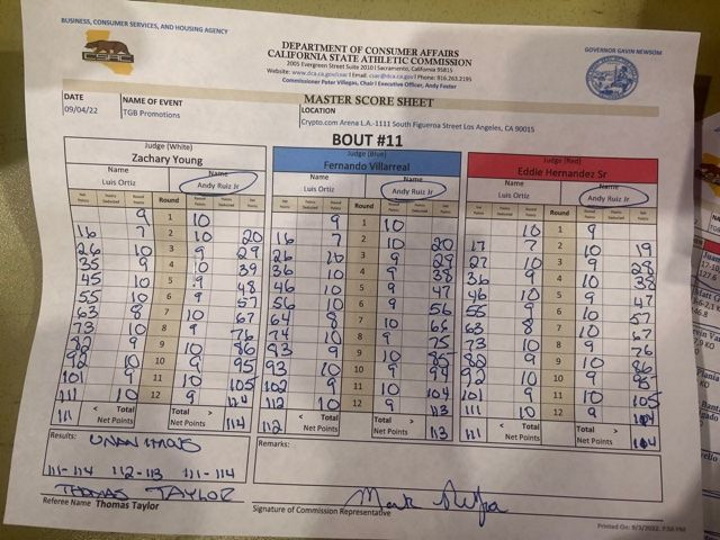 BUSINESS, CONSUMER SERVICES, AND HOUSING AGENCY
GOVERNOR GAVIN NEWSOM
CSAC
DEPARTMENT OF CONSUMER AFFAIRS
CALIFORNIA STATE ATHLETIC COMMISSION
2005 Evergreen Street Suite 2010 | Sacramento, California 95815
Website: www.dca.ca.gov/csac | Email: csac@dca.ca.gov | Phone: 916.263.2195
Commissioner Peter Villegas, Chair | Executive Officer, Andy Foster
MASTER SCORE SHEET
DATE NAME OF EVENT LOCATION
09/04/22 TGB Promotions Crypto.com Arena L.A.-1111 South Figueroa Street Los Angeles, CA 90015
BOUT #11
Judge (White) Judge (Blue) Judge (Red)
Zachary Young Fernando Villarreal Eddie Hernandez Sr
Name Name Name Name Name Name
Luis Ortiz Andy Ruiz Jr Luis Ortiz Andy Ruiz Jr Luis Ortiz Andy Ruiz Jr
Round Round Round
9 1 10 9 1 10 10 1 9
16 7 2 10 20 16 7 2 10 20 17 7 2 10 19
26 10 3 9 29 26 10 3 9 29 27 10 3 9 28
35 9 4 10 39 36 10 4 9 38 36 9 4 10 38
45 10 5 9 48 46 10 5 9 47 46 10 5 9 47
55 10 6 9 57 56 10 6 9 56 55 9 6 10 57
63 8 7 10 67 64 8 7 10 66 63 8 7 10 67
73 10 8 9 76 74 10 8 9 75 73 10 8 9 76
82 9 9 10 86 83 9 9 10 85 82 9 9 10 86
92 10 10 9 95 93 10 10 9 94 92 10 10 9 95
101 9 11 10 105 102 9 11 10 104 101 9 11 10 105
111 10 12 9 114 112 10 12 9 113 111 10 12 9 114
111 < Total Net Points Total > Net Points 114 112 < Total Net Points Total > Net Points 113 111 < Total Net Points Total > Net Points 114
Results: UNANIMOUS
Remarks:
111-114 112-113 111-114
THOMAS TAYLOR
Referee Name Thomas Taylor
Signature of Commission Representative